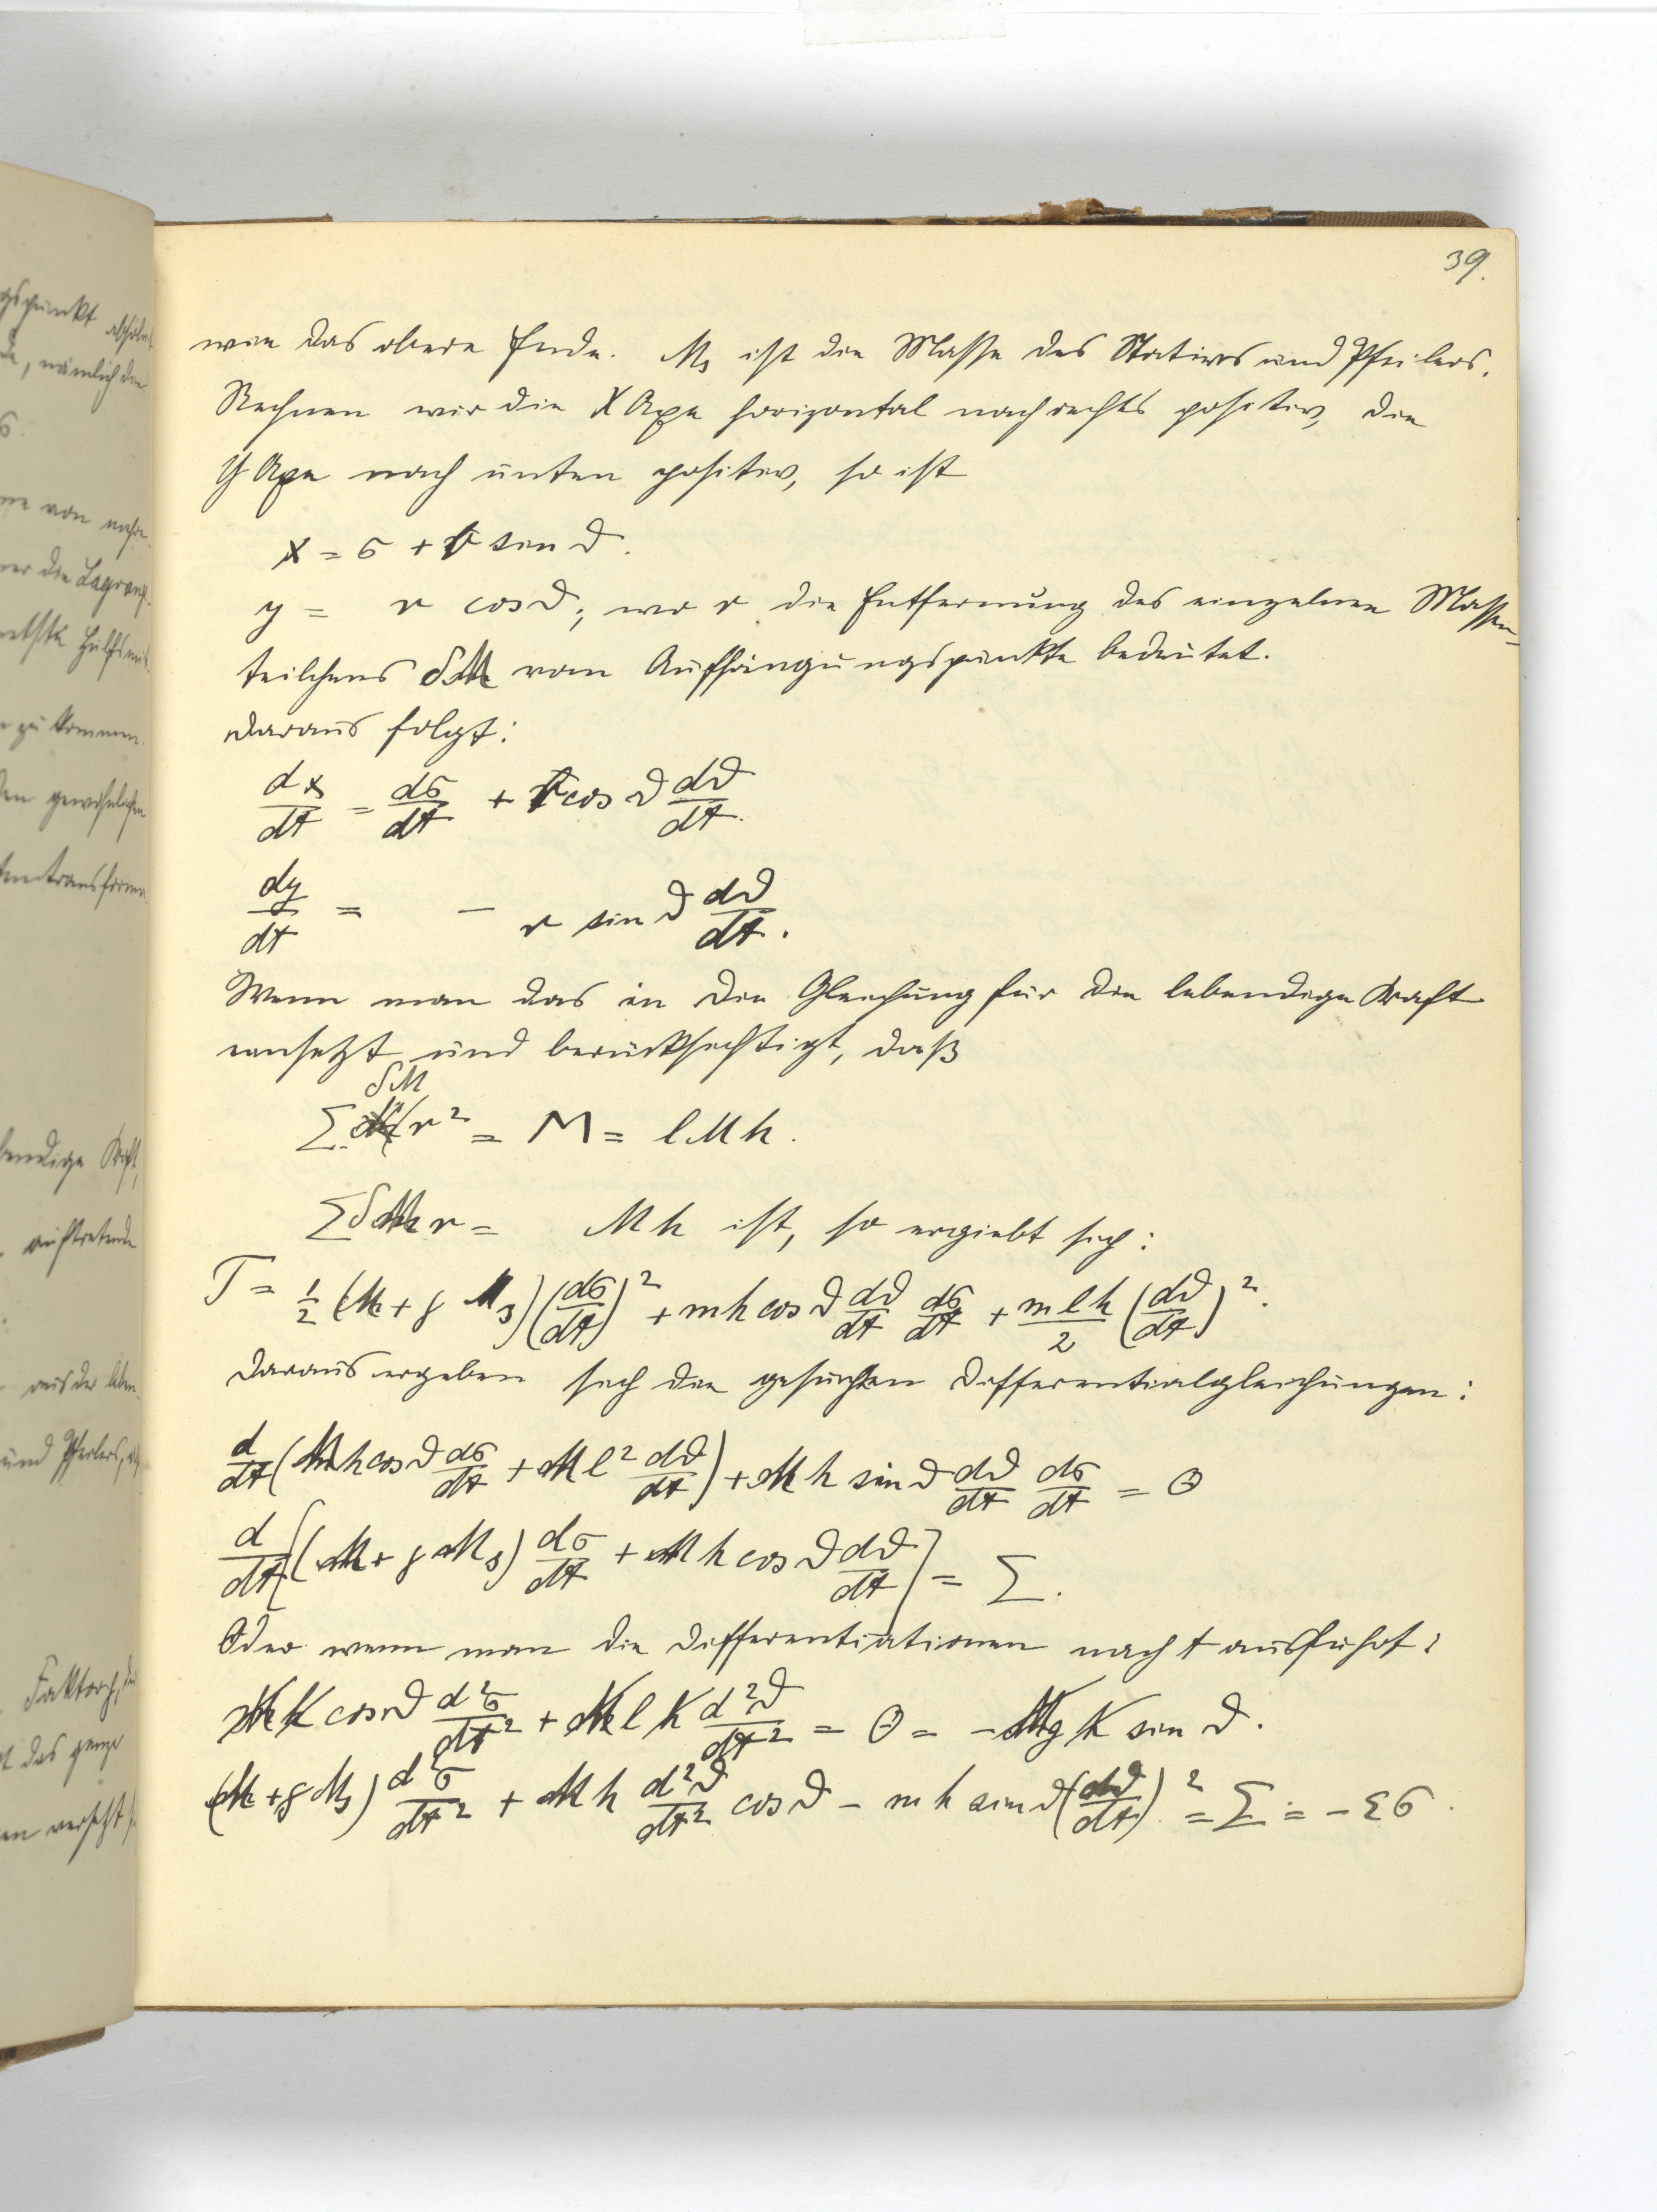 39.
wie das obere Ende. M₃ ist die Masse des Stativs und Pfeilers.
Rechnen wir die X Axe horizontal nach rechts positiv, die
Y Axe nach unten positiv, so ist
x = σ + r sin ϑ.
y = r cos ϑ; wo r die Entfernung des einzelnen Massen-
teilchens δM vom Aufhängungspunkte bedeutet.
Daraus folgt:
dx/dt = dσ/dt + r cos ϑ dϑ/dt.
dy/dt = − r sin ϑ dϑ/dt.
Wenn man das in die Gleichung für die lebendige Kraft
einsetzt und berücksichtigt, daß
Σ δM r² = M = l M h.
Σ δM r = M h ist, so ergiebt sich:
T = 1/2 (M + γ M₃)(dσ/dt)² + m h cos ϑ dϑ/dt dσ/dt + m l h/2 (dϑ/dt)².
Daraus ergeben sich die gesuchten Differentialgleichungen:
d/dt (M h cos ϑ dσ/dt + M l² dϑ/dt) + M h sin ϑ dϑ/dt dσ/dt = Θ
d/dt [(M + γ M₃) dσ/dt + M h cos ϑ dϑ/dt] = Σ.
Oder wenn man die Differentiationen nach t ausführt:
M h cos ϑ d²σ/dt² + M l h d²ϑ/dt² = Θ = − M g h sin ϑ.
(M + γ M₃) d²σ/dt² + M h d²ϑ/dt² cos ϑ − m h sin ϑ (dϑ/dt)² = Σ = − εσ.